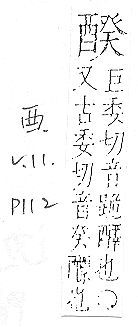 巨委切音跪也〇
又古委切音癸也
酉.
V.11.
P112